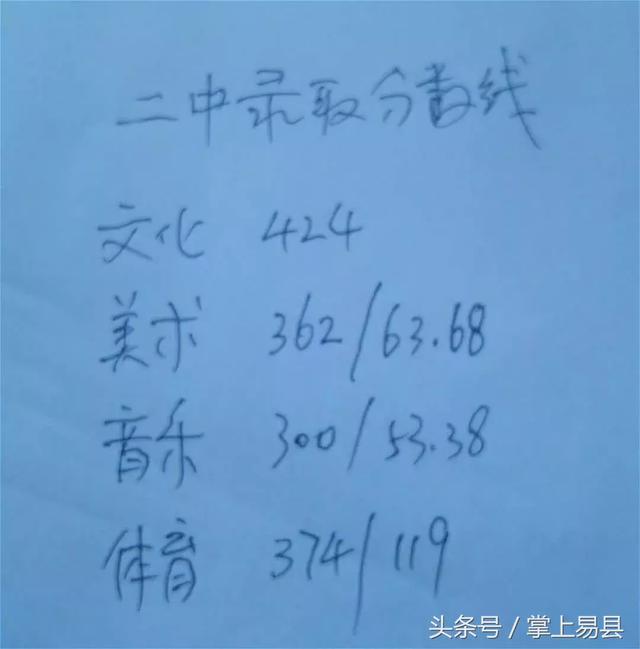 二中录取分数线
文化 424
美术 362/63.68
音乐 300/53.38
体育 374/119
头条号/掌上易县